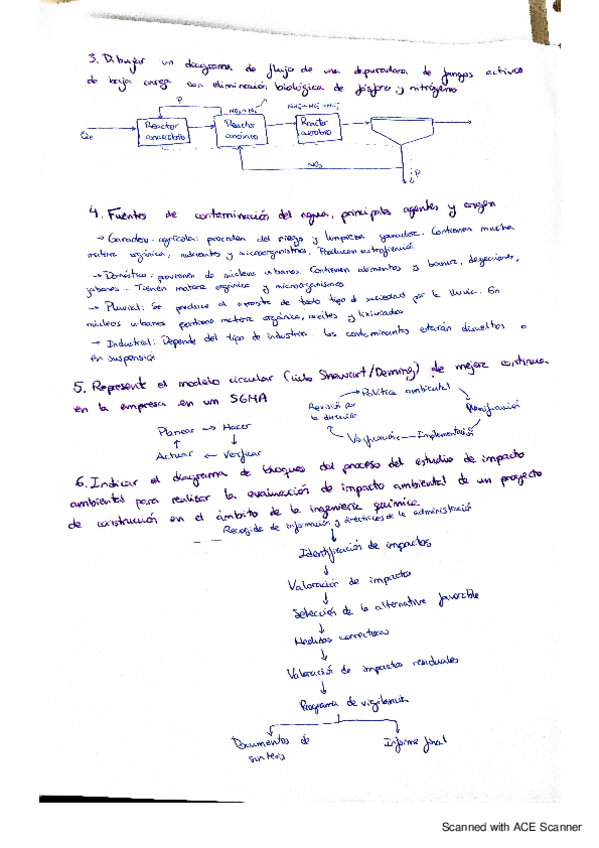 3. Dibujar un diagrama de flujo de una depuradora de fangos activos
de baja carga con eliminación biológica de fósforo y nitrógeno
P
Qe
Reactor
anaerobio
Reactor
anóxico
Reactor
aerobio
NO3
P
4. Fuentes de contaminación del agua, principales agentes y origen
→ Ganadero-agrícola: proceden del riego y limpieza ganadera. Contienen mucha
materia orgánica, nutrientes y microorganismos. Producen eutrofización
→ Doméstico: provienen de núcleos urbanos. Contienen alimentos y basura, deyecciones,
jabones. Tienen materia orgánica y microorganismos
→ Pluvial: Se produce el arrastre de todo tipo de suciedad por la lluvia. En
núcleos urbanos partículas materia orgánica, aceites y lixiviados
→ Industrial: Depende del tipo de industria. Los contaminantes estarán disueltos o
en suspensión
5. Represente el modelo circular (ciclo Shewart/Deming) de mejora continua
en la empresa en un SGMA
Planear → Hacer
↑ ↓
Actuar ← Verificar
Política ambiental
Revisión por
la dirección
Planificación
Verificación ← Implementación
6. Indicar el diagrama de bloques del proceso del estudio de impacto
ambiental para realizar la evaluación de impacto ambiental de un proyecto
de construcción en el ámbito de la ingeniería química.
Recogida de información y directrices de la administración
Identificación de impactos
Valoración de impacto
Selección de la alternativa favorable
Medidas correctoras
Valoración de impactos residuales
Programa de vigilancia
Documentos de
síntesis
Informe final
Scanned with ACE Scanner